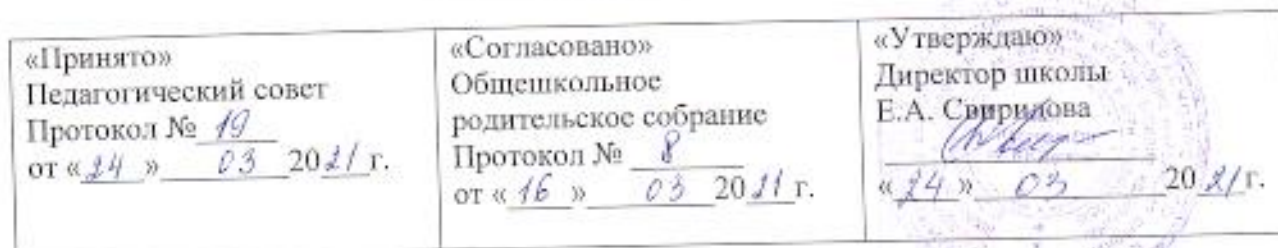 «Принято»
Педагогический совет
Протокол № 19
от «24» 03 2021 г.
«Согласовано»
Общешкольное
родительское собрание
Протокол № 8
от «16» 03 2021 г.
«Утверждаю»
Директор школы
Е.А. Свиридова
«24» 03 2021 г.